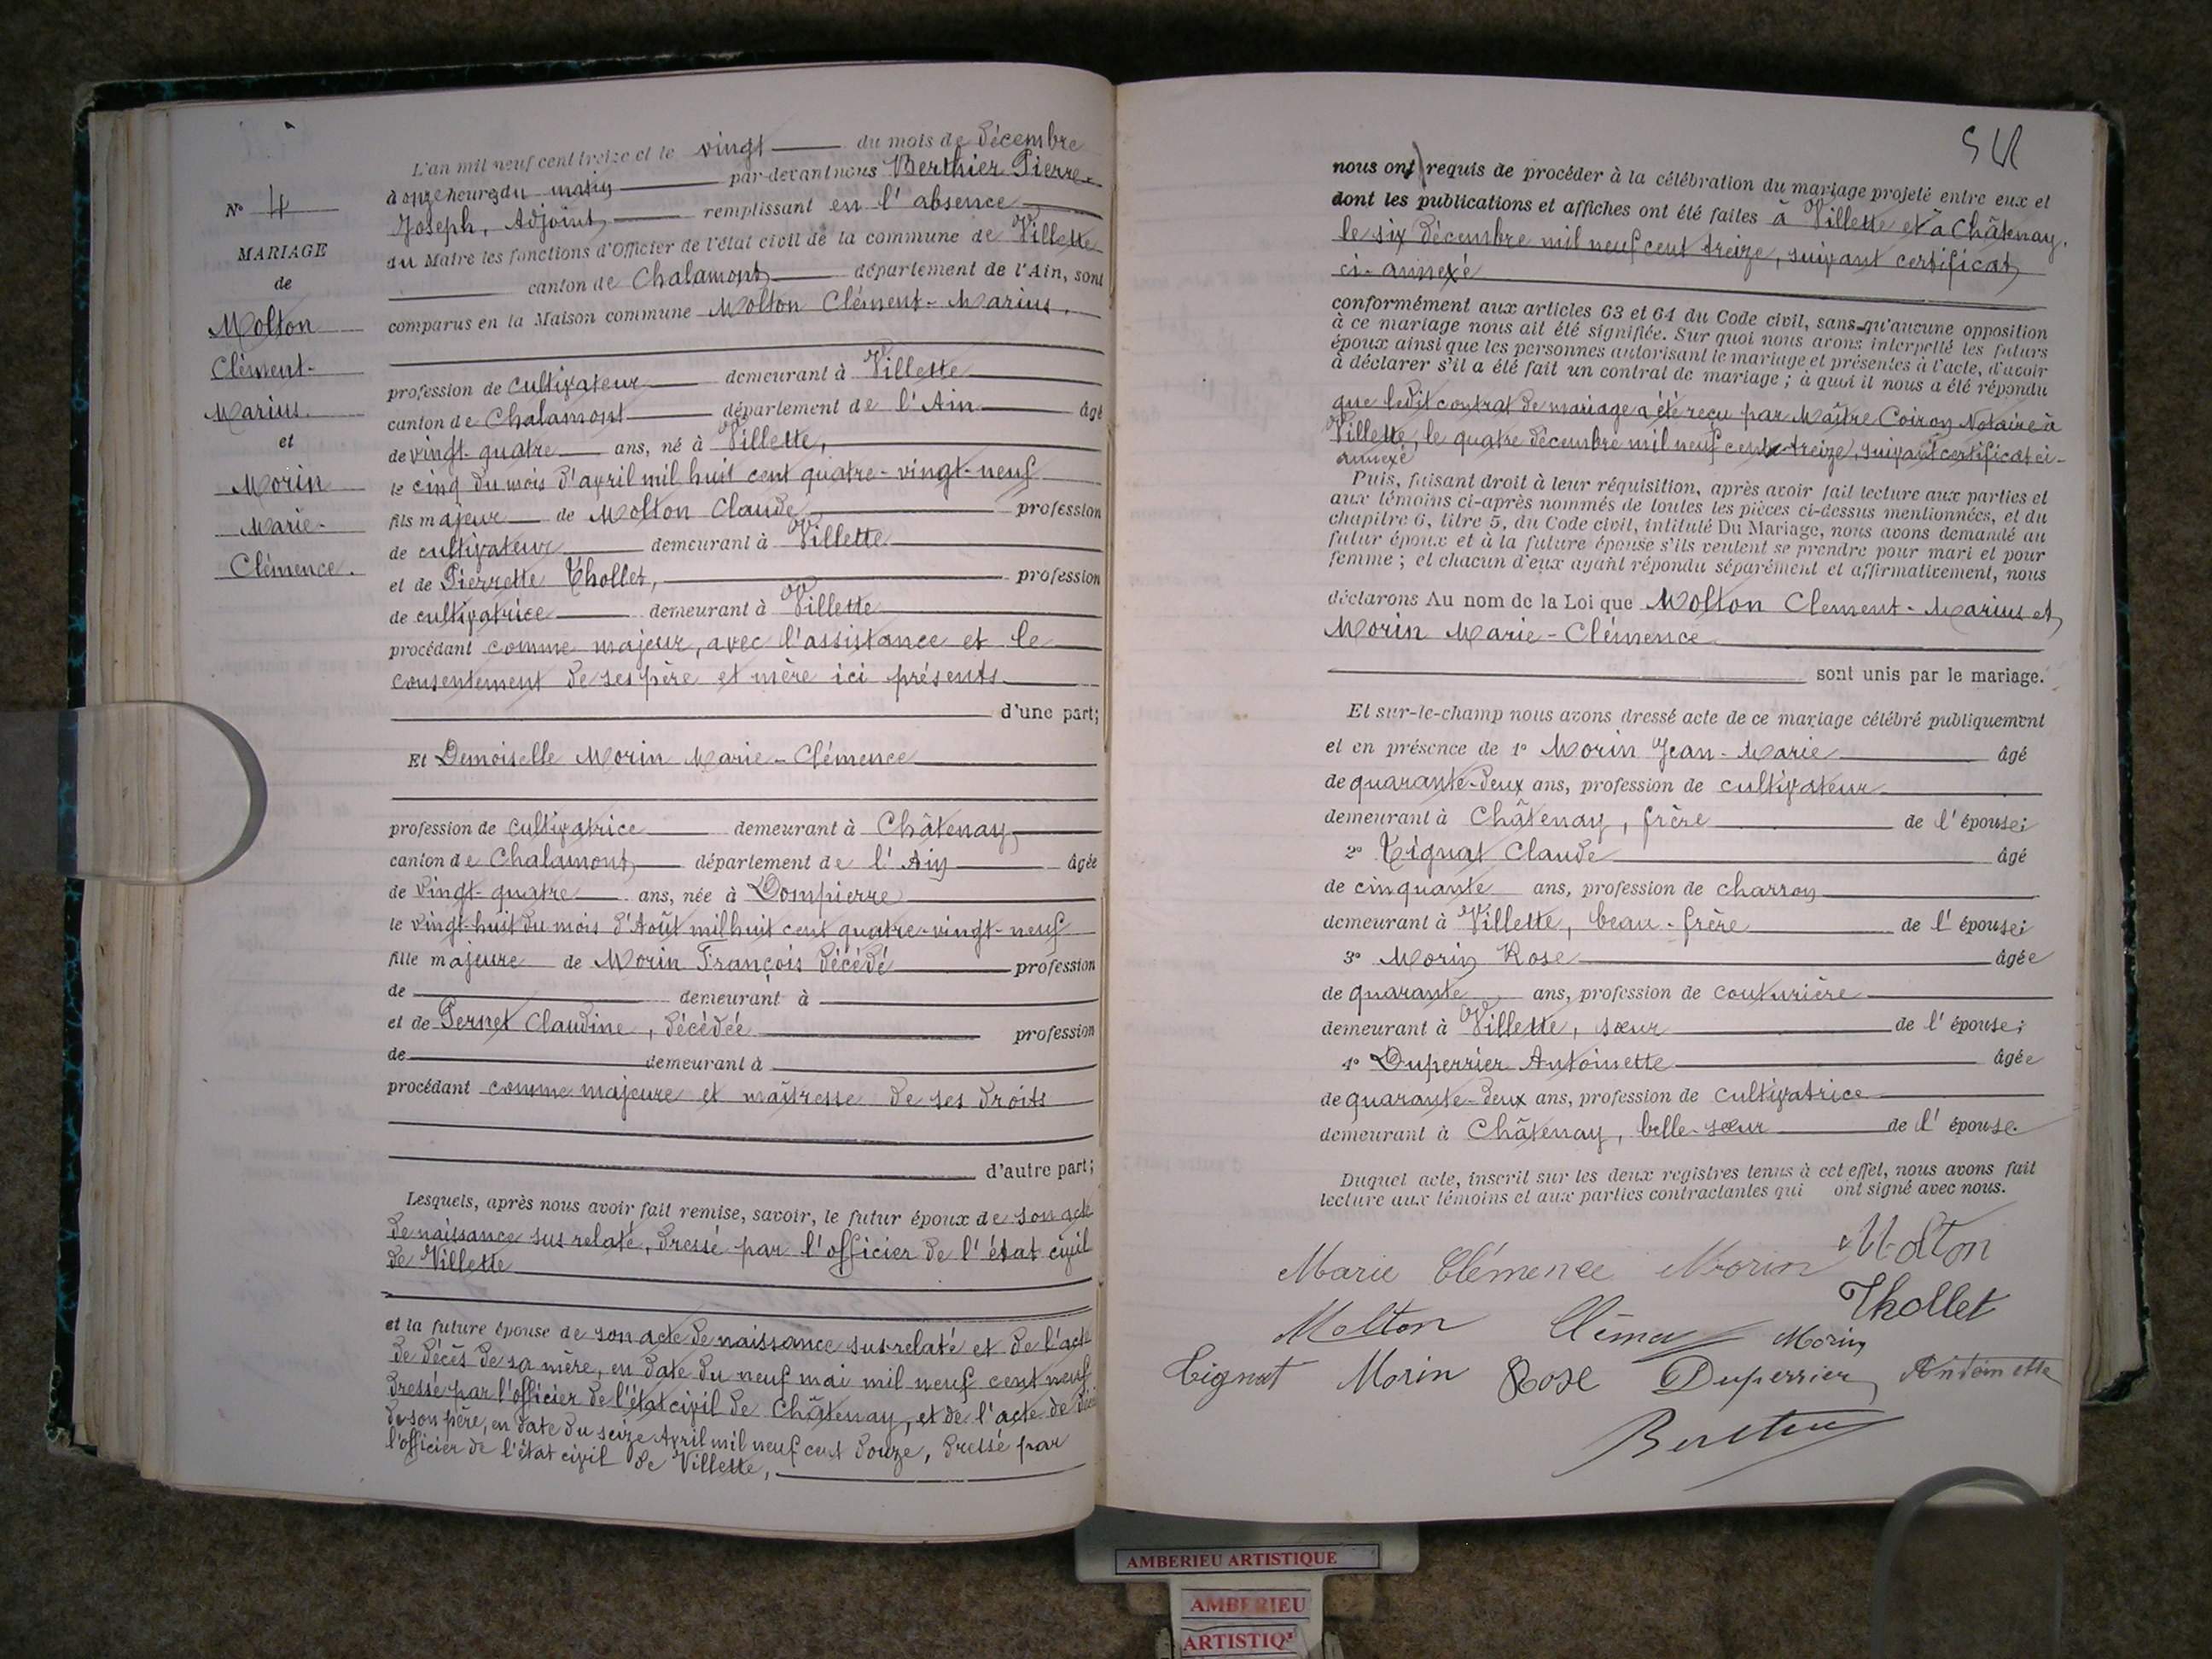 N° 4
MARIAGE
de
Molton
Clément-
Marius.
et
Morin
Marie-
Clémence.
L'an mil neuf cent treize et le vingt du mois de Décembre
à onze heures du matin par-devant nous Berthier Pierre-
Joseph, Adjoint, remplissant en l'absence
du Maire les fonctions d'Officier de l'état civil de la commune de Villette
canton de Chalamont département de l'Ain, sont
comparus en la Maison commune Molton Clément-Marius.
profession de cultivateur demeurant à Villette
canton de Chalamont département de l'Ain âgé
de vingt-quatre ans, né à Villette,
le cinq du mois d'avril mil huit cent quatre-vingt-neuf
fils majeur de Molton Claude profession
de cultivateur demeurant à Villette
et de Pierrette Thollet, profession
de cultivatrice demeurant à Villette
procédant comme majeur, avec l'assistance et le
consentement de ses père et mère ici présents
d'une part;
Et Demoiselle Morin Marie-Clémence
profession de cultivatrice demeurant à Châtenay,
canton de Chalamont département de l'Ain âgée
de vingt-quatre ans, née à Dompierre
le vingt-huit du mois d'Août mil huit cent quatre-vingt-neuf
fille majeure de Morin François décédé profession
de demeurant à
et de Pernet Claudine, décédée profession
de demeurant à
procédant comme majeure et maîtresse de ses droits
d'autre part;
Lesquels, après nous avoir fait remise, savoir, le futur époux de son acte
de naissance sus relaté, dressé par l'officier de l'état civil
de Villette
et la future épouse de son acte de naissance sus-relaté et de l'acte
de décès de sa mère, en date du neuf mai mil neuf cent neuf
dressé par l'officier de l'état civil de Châtenay, et de l'acte de décès
de son père, en date du seize Avril mil neuf cent douze, dressé par
l'officier de l'état civil de Villette,
nous ont requis de procéder à la célébration du mariage projeté entre eux et
dont les publications et affiches ont été faites à Villette et à Châtenay.
le six décembre mil neuf cent treize, suivant certificat
ci-annexé
conformément aux articles 63 et 64 du Code civil, sans qu'aucune opposition
à ce mariage nous ait été signifiée. Sur quoi nous avons interpellé les futurs
époux ainsi que les personnes autorisant le mariage et présentes à l'acte, d'avoir
à déclarer s'il a été fait un contrat de mariage; à quoi il nous a été répondu
que ledit contrat de mariage a été reçu par Maître Coiron Notaire à
Villette, le quatre décembre mil neuf cent treize, suivant certificat ci-
annexé
Puis, faisant droit à leur réquisition, après avoir fait lecture aux parties et
aux témoins ci-après nommés de toutes les pièces ci-dessus mentionnées, et du
chapitre 6, titre 5, du Code civil, intitulé Du Mariage, nous avons demandé au
futur époux et à la future épouse s'ils veulent se prendre pour mari et pour
femme; et chacun d'eux ayant répondu séparément et affirmativement, nous
déclarons Au nom de la Loi que Molton Clement-Marius et
Morin Marie-Clémence
sont unis par le mariage.
Et sur-le-champ nous avons dressé acte de ce mariage célébré publiquement
et en présence de 1° Morin Jean-Marie âgé
de quarante-deux ans, profession de cultivateur
demeurant à Châtenay, frère de l'épouse;
2° Tignat Claude âgé
de cinquante ans, profession de charron
demeurant à Villette, beau-frère de l'épouse;
3° Morin Rose âgée
de quarante ans, profession de couturière
demeurant à Villette, sœur de l'épouse;
4° Duperrier Antoinette âgée
de quarante-deux ans, profession de cultivatrice
demeurant à Châtenay, belle-sœur de l'épouse.
Duquel acte, inscrit sur les deux registres tenus à cet effet, nous avons fait
lecture aux témoins et aux parties contractantes qui ont signé avec nous.
Marie Clémence Morin Molton
Thollet
Molton Morin
Tignat Morin Rose Duperrier Antoinette
AMBERIEU ARTISTIQUE
AMBERIEU
ARTISTIQ